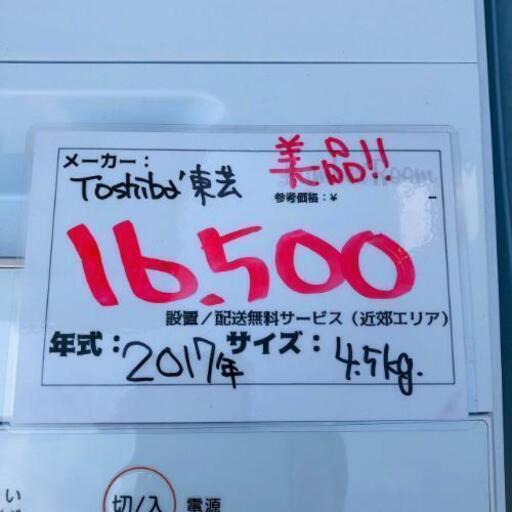 メーカー：
Toshiba 東芸
美品!!
参考価格：¥ -
16,500
設置／配送無料サービス（近郊エリア）
年式： 2017年 サイズ： 4.5kg.
い
切/入 電源